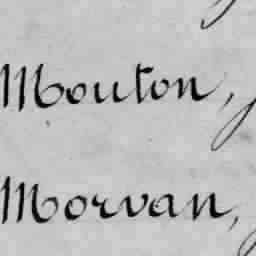 Mouton,
Morvan,